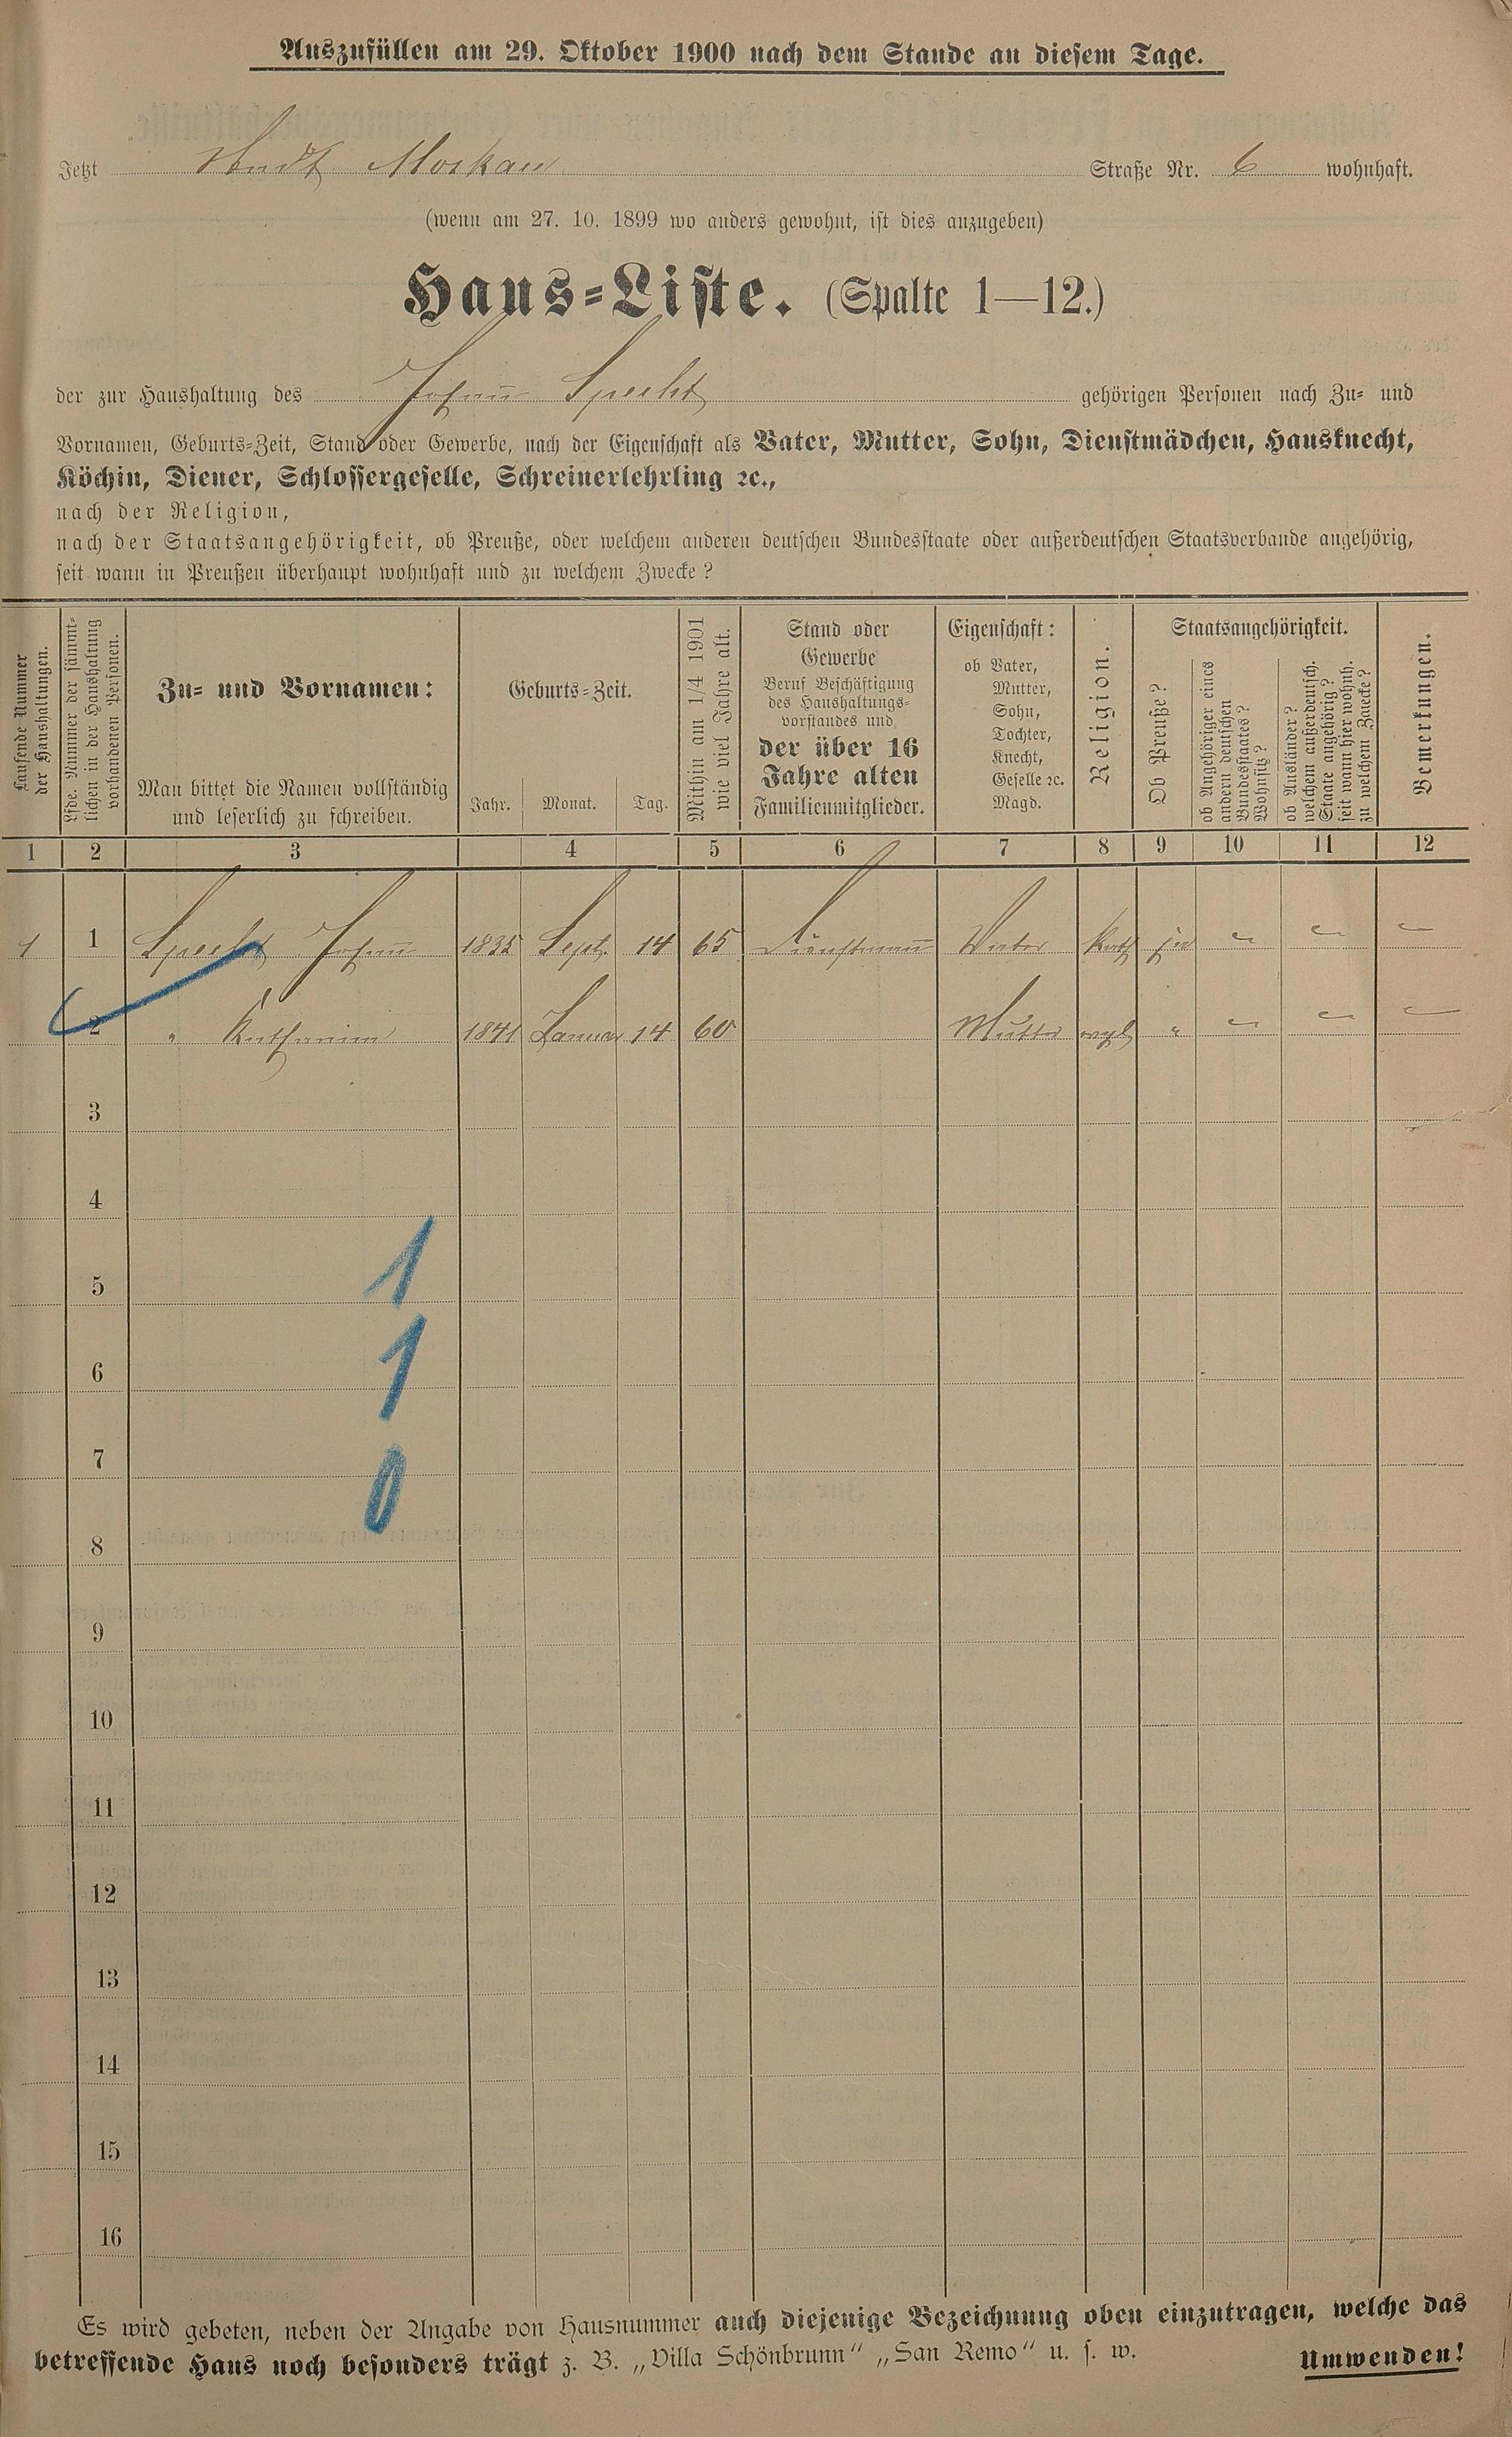 Auszufüllen am 29. Oktober 1900 nach dem Stande an diesem Tage.
Jetzt Stadt Moskau Straße Nr. 6 wohnhaft.
(wenn am 27. 10. 1899 wo anders gewohnt, ist dies anzugeben)
Haus-Liste. (Spalte 1—12.)
der zur Haushaltung des Johann Specht gehörigen Personen nach Zu- und
Vornamen, Geburts-Zeit, Stand oder Gewerbe, nach der Eigenschaft als Vater, Mutter, Sohn, Dienstmädchen, Hausknecht,
Köchin, Diener, Schlossergeselle, Schreinerlehrling ꝛc.,
nach der Religion,
nach der Staatsangehörigkeit, ob Preuße, oder welchem anderen deutschen Bundesstaate oder außerdeutschen Staatsverbande angehörig,
seit wann in Preußen überhaupt wohnhaft und zu welchem Zwecke?
Laufende Nummer
der Haushaltungen.
Lfde. Nummer der sämmt-
lichen in der Haushaltung
vorhandenen Personen.
Zu- und Vornamen:
Man bittet die Namen vollständig
und leserlich zu schreiben.
Geburts-Zeit.
Jahr. Monat. Tag.
Mithin am 1/4 1901
wie viel Jahre alt.
Stand oder
Gewerbe
Beruf Beschäftigung
des Haushaltungs-
vorstandes und
der über 16
Jahre alten
Familienmitglieder.
Eigenschaft:
ob Vater,
Mutter,
Sohn,
Tochter,
Knecht,
Geselle ꝛc.
Magd.
Religion.
Staatsangehörigkeit.
Ob Preuße?
ob Angehöriger eines
andern deutschen
Bundesstaates?
Wohnsitz?
ob Ausländer?
welchem außerdeutsch.
Staate angehörig?
seit wann hier wohnh.
zu welchem Zwecke?
Bemerkungen.
1 2 3 4 5 6 7 8 9 10 11 12
1 1 Specht Johann 1835 Sept. 14 65 Dienstmann Vater Kath ja
2 " Katharina 1841 Januar 14 60 Mutter evgl "
3
4
5
1
6
1
7
0
8
9
10
11
12
13
14
15
16
Es wird gebeten, neben der Angabe von Hausnummer auch diejenige Bezeichnung oben einzutragen, welche das
betreffende Haus noch besonders trägt z. B. „Villa Schönbrunn“ „San Remo“ u. s. w. Umwenden!